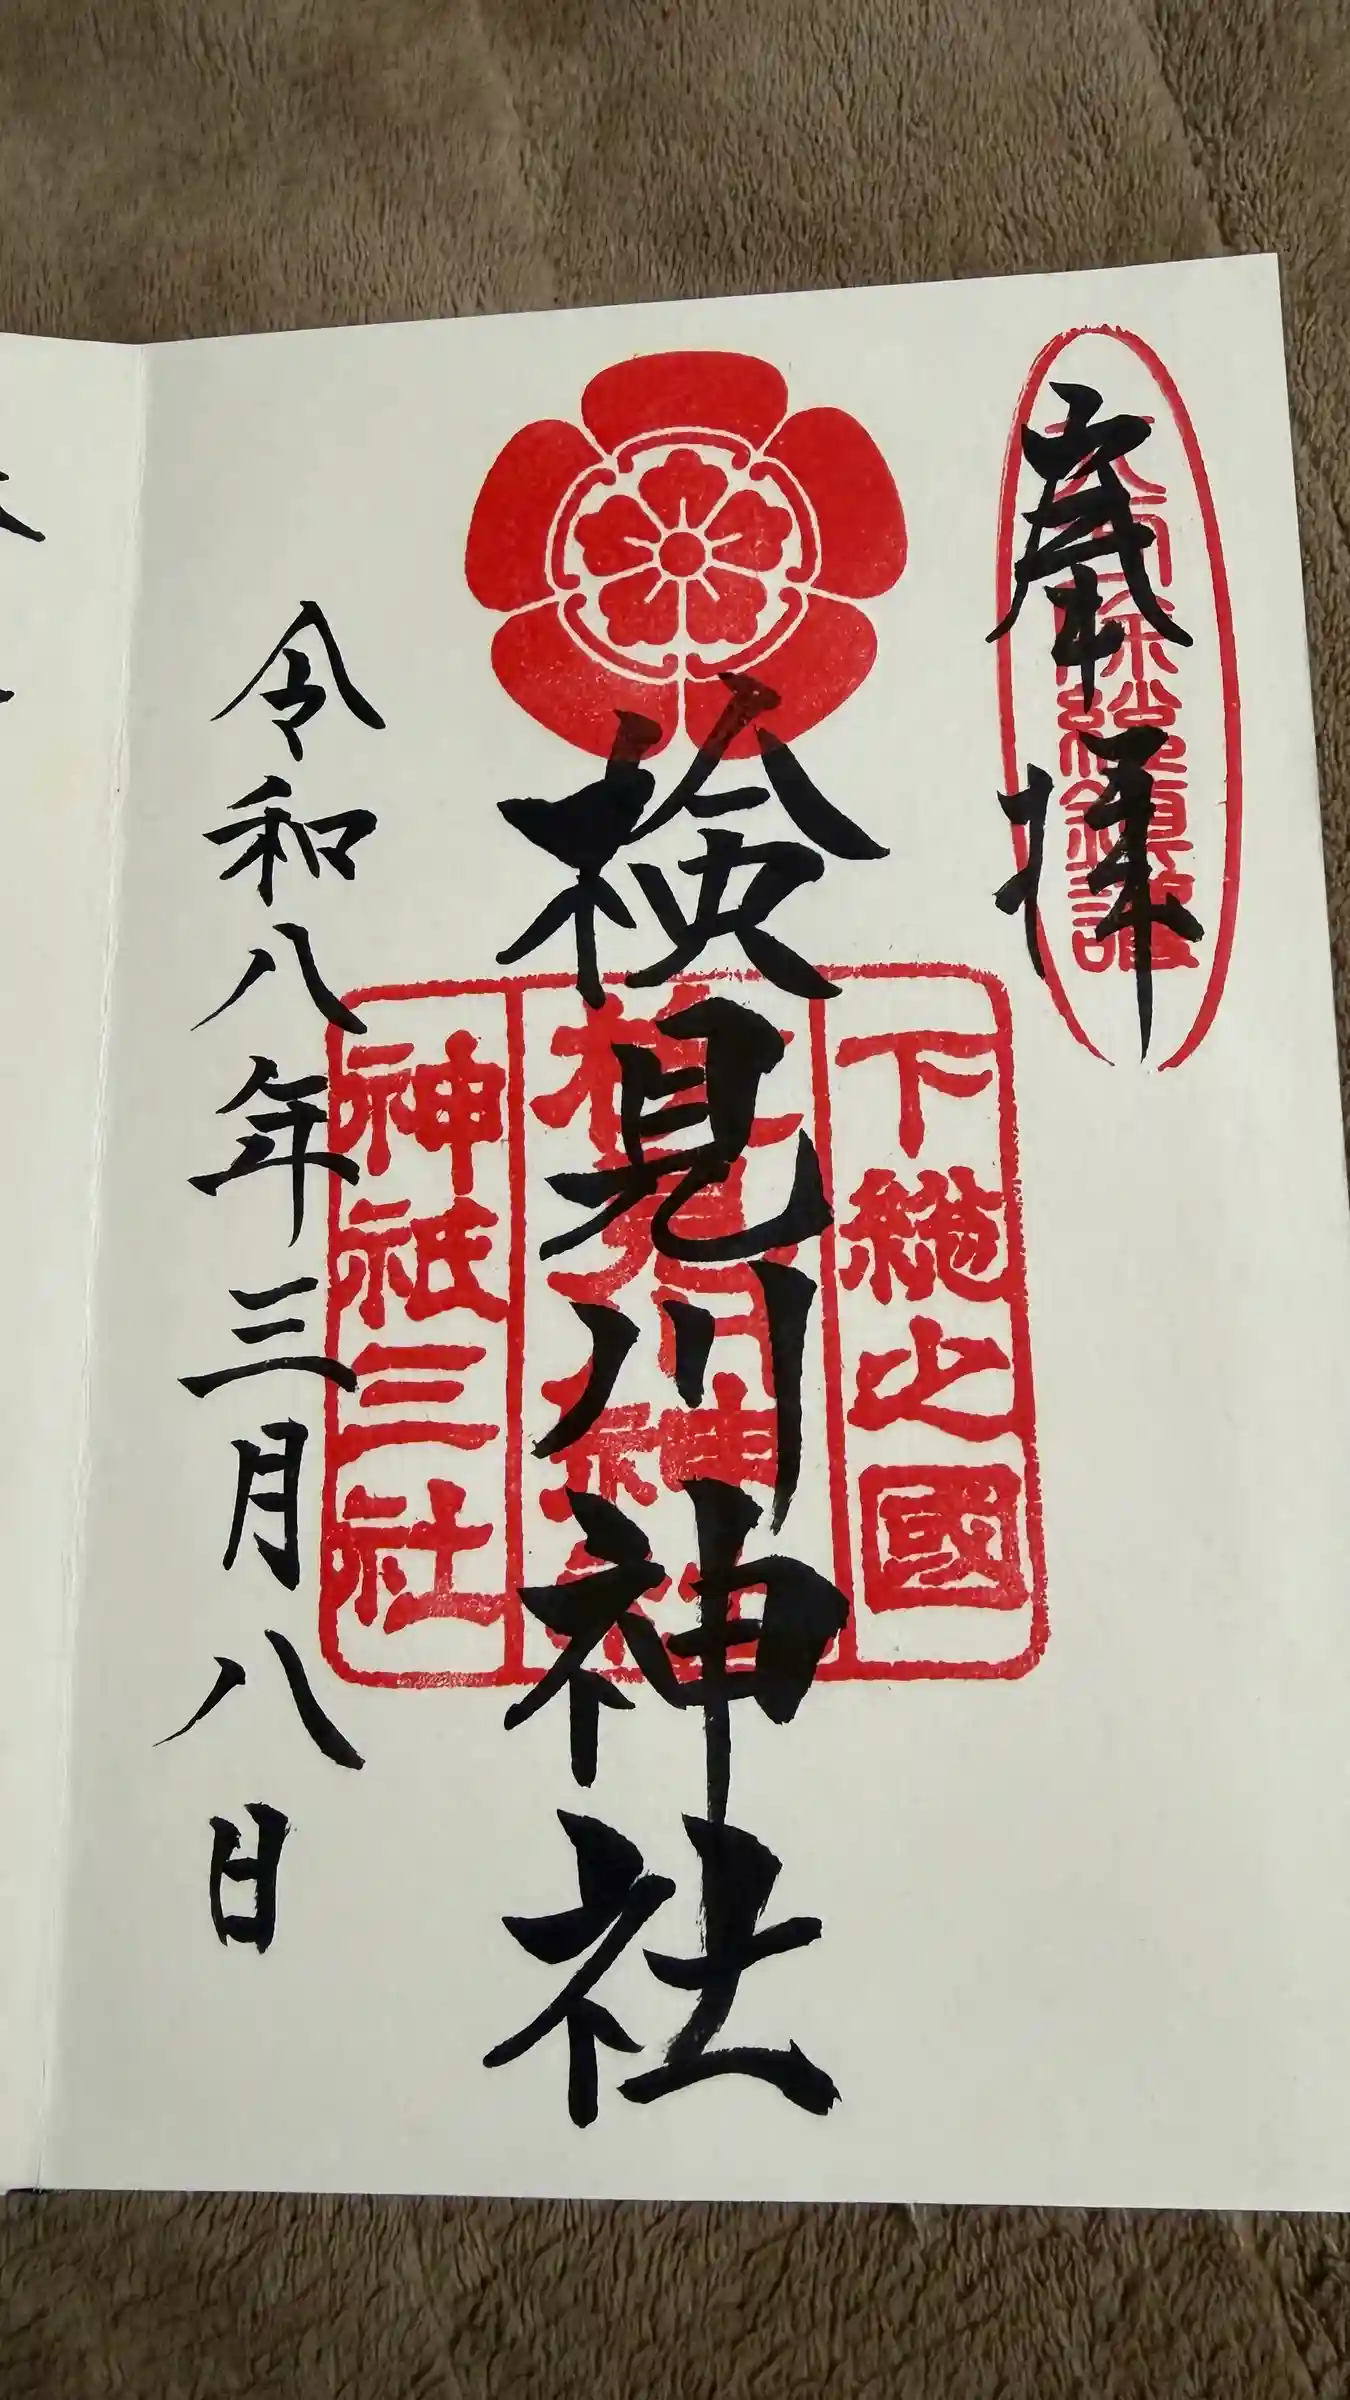 奉拝
下総之國
検見川神社
神祇三社
令和八年三月八日